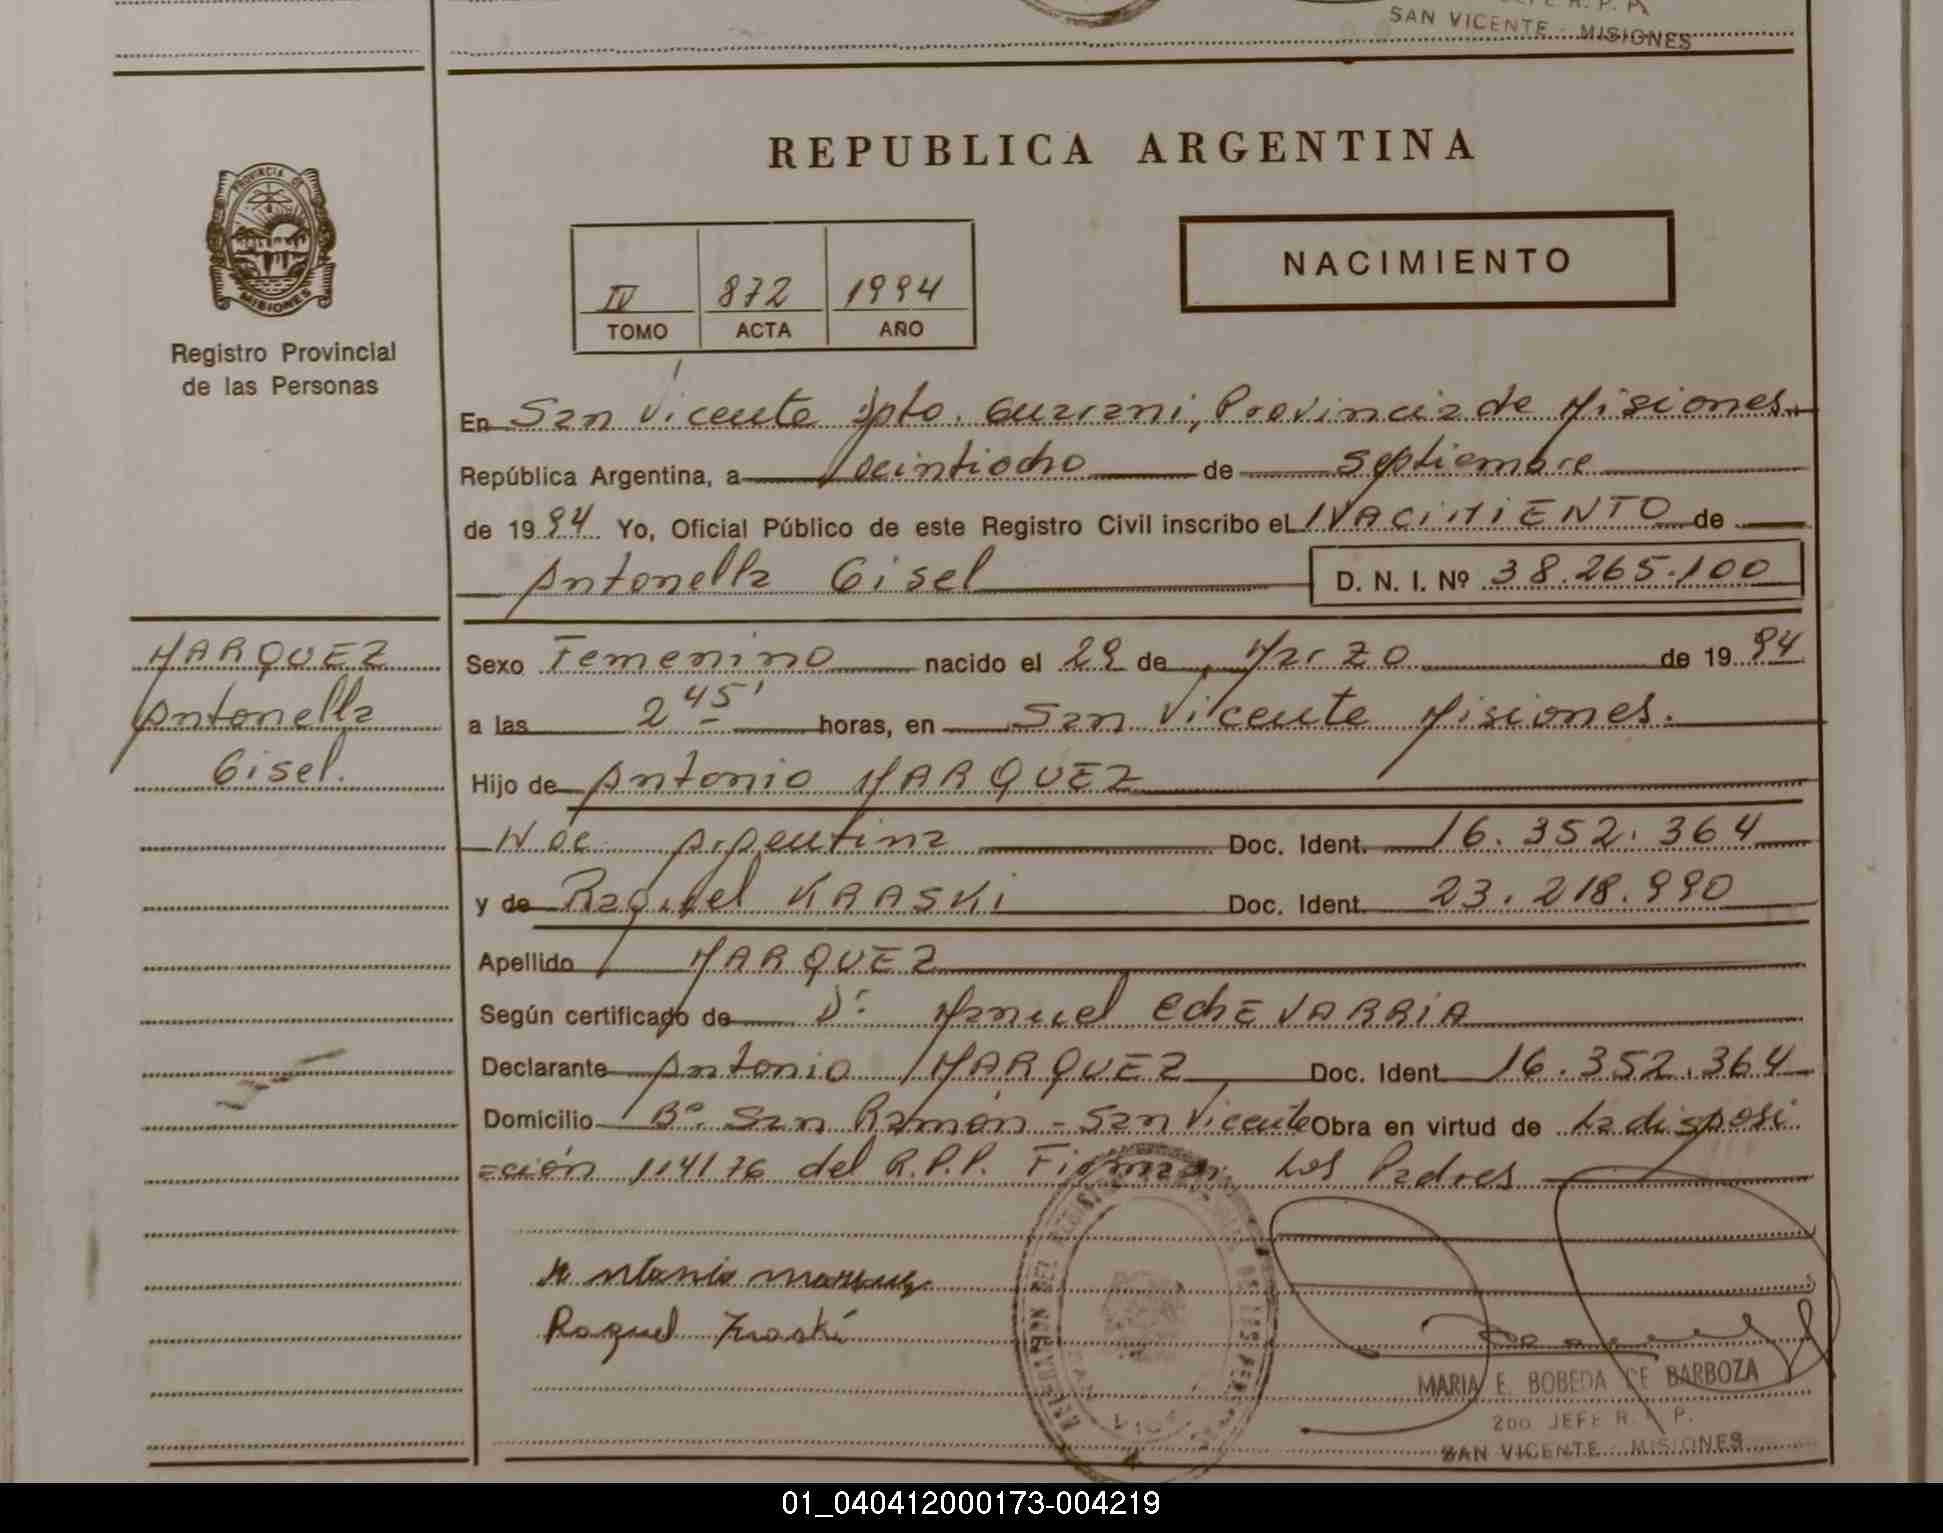 SAN VICENTE - MISIONES
REPUBLICA ARGENTINA
PROVINCIA DE
MISIONES
Registro Provincial
de las Personas
IV 872 1994
TOMO ACTA AÑO
NACIMIENTO
En San Vicente Dpto. Guarani, Provincia de Misiones.
República Argentina, a Veintiocho de Septiembre
de 1994 Yo, Oficial Público de este Registro Civil inscribo el NACIMIENTO de
Antonella Gisel D. N. I. Nº 38.265.100
MARQUEZ
Antonella
Gisel.
Sexo Femenino nacido el 29 de Marzo de 1994
a las 2 45' horas, en San Vicente Misiones.
Hijo de Antonio MARQUEZ
Nac Argentina Doc. Ident. 16.352.364
y de Raquel KRASKI Doc. Ident. 23.218.990
Apellido MARQUEZ
Según certificado de Dr. Manuel EchEVARRIA
Declarante Antonio MARQUEZ Doc. Ident. 16.352.364
Domicilio Bº. San Ramón - San Vicente Obra en virtud de La disposi
=ción 1141 76 del R.P.P. Firman Los Padres
Antonio marquez
Raquel Kraski
MARIA E. BOBEDA DE BARBOZA
2DO JEFE R. P. P.
SAN VICENTE - MISIONES
01_040412000173-004219